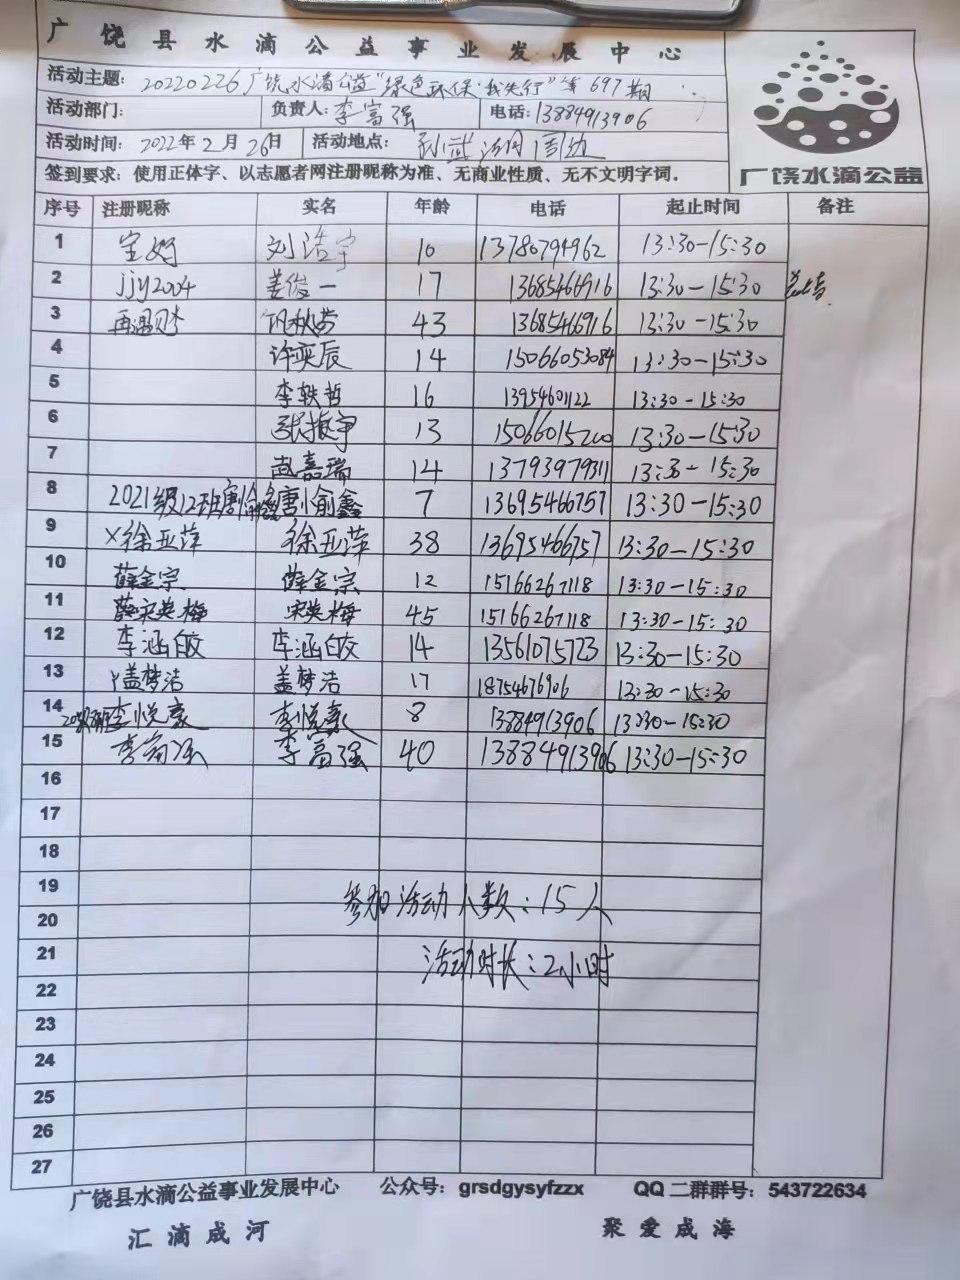 广饶县水滴公益事业发展中心
活动主题: 20220226广饶水滴公益"绿色环保·我先行"第697期
活动部门: 负责人: 李富强 电话: 13884913906
活动时间: 2022年2月26日 活动地点: 孙武湖周边
签到要求: 使用正体字、以志愿者网注册昵称为准、无商业性质、无不文明字词.
广饶水滴公益
序号 注册昵称 实名 年龄 电话 起止时间 备注
1 宝好 刘浩宇 10 13780794962 13:30-15:30
2 jjy2004 姜俊一 17 13685466916 13:30-15:30
3 再遇见 43 13685466916 13:30-15:30
4 许奕辰 14 15066053084 13:30-15:30
5 李轶哲 16 13954601122 13:30-15:30
6 张振宇 13 15066015200 13:30-15:30
7 武嘉瑞 14 13793979311 13:30-15:30
8 2021级12班唐愉鑫 唐愉鑫 7 13695466757 13:30-15:30
9 X徐亚萍 徐亚萍 38 13695466757 13:30-15:30
10 薛金宗 薛金宗 12 15166267118 13:30-15:30
11 薛宋英梅 宋英梅 45 15166267118 13:30-15:30
12 李涵皎 李涵皎 14 13561075723 13:30-15:30
13 盖梦洁 盖梦洁 17 18754676906 13:30-15:30
14 李悦豪 李悦豪 8 13884913906 13:30-15:30
15 李富强 李富强 40 13884913906 13:30-15:30
16
17
18
19
参加活动人数:15人
20
21
活动时长:2小时
22
23
24
25
26
27
广饶县水滴公益事业发展中心 公众号: grsdgysyfzzx QQ二群群号: 543722634
汇滴成河 聚爱成海